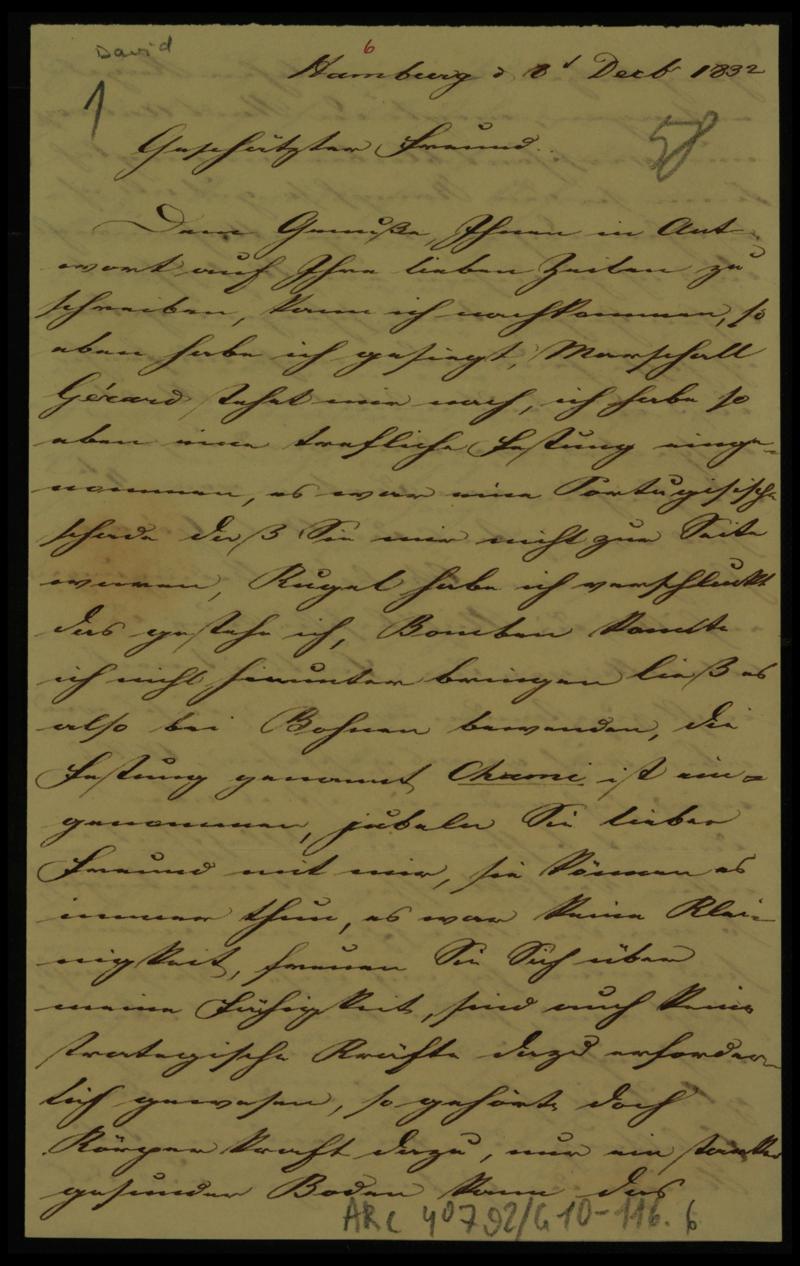 David
6
Hamburg d 8t Decb 1832
1
58
Geschätzter Freund.
Dem Genuße, Ihnen in Ant-
wort auf Ihre lieben Zeilen zu
schreiben, kann ich nachkommen, so
eben habe ich gesiegt, Marschall
Gérard stehet mir nach, ich habe so
eben eine trefliche Festung einge-
nommen, es war eine Portugisische
schade daß Sie mir nicht zur Seite
waren, Kugel habe ich verschluckt
das gestehe ich, Bomben konnte
ich nicht hinunter bringen ließ es
also bei Bohnen bewenden, die
Festung genannt ist ein-
genommen, jubeln Sie lieber
Freund mit mir, sie können es
immer thun, es war keine Klei-
nigkeit, freuen Sie Sich über
meine Fähigkeit, sind auch keine
strategische Kräfte dazu erforder-
lich gewesen, so gehörte doch
Körper kraft dazu, nur ein starker
gesunder Boden kann das
ARC 40792/G 10-116. 6